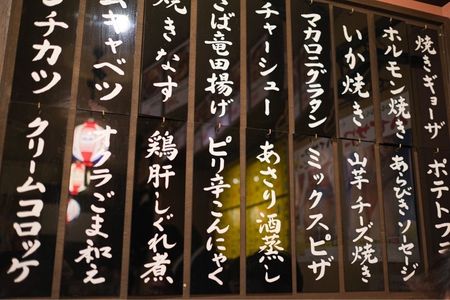 焼きギョーザ
ホルモン焼き
いか焼き
マカロニグラタン
チャーシュー
さば竜田揚げ
焼きなす
キャベツ
チカツ
ポテトフ
あらびきソーセージ
山芋チーズ焼き
ミックスピザ
あさり酒蒸し
ピリ辛こんにゃく
鶏肝しぐれ煮
オクラごま和え
クリームコロッケ